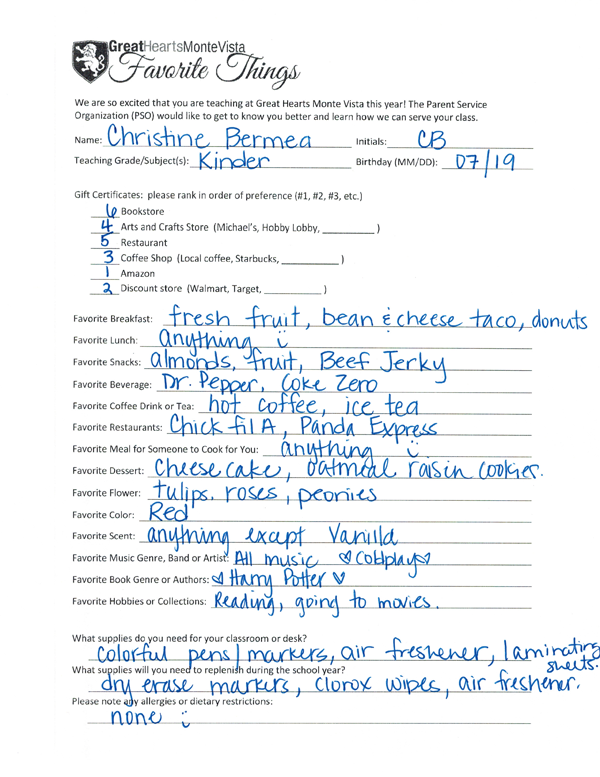 GreatHeartsMonteVista
Favorite Things
We are so excited that you are teaching at Great Hearts Monte Vista this year! The Parent Service
Organization (PSO) would like to get to know you better and learn how we can serve your class.
Name: Christine Bermea Initials: CB
Teaching Grade/Subject(s): Kinder Birthday (MM/DD): 07/19
Gift Certificates: please rank in order of preference (#1, #2, #3, etc.)
6 Bookstore
4 Arts and Crafts Store (Michael's, Hobby Lobby, __________ )
5 Restaurant
3 Coffee Shop (Local coffee, Starbucks, __________ )
1 Amazon
2 Discount store (Walmart, Target, __________ )
Favorite Breakfast: fresh fruit, bean & cheese taco, donuts
Favorite Lunch: anything :)
Favorite Snacks: almonds, fruit, Beef Jerky
Favorite Beverage: Dr. Pepper, Coke Zero
Favorite Coffee Drink or Tea: hot coffee, ice tea
Favorite Restaurants: Chick fil A, Panda Express
Favorite Meal for Someone to Cook for You: anything :)
Favorite Dessert: Cheesecake, oatmeal raisin cookies.
Favorite Flower: tulips, roses, peonies
Favorite Color: Red
Favorite Scent: anything except Vanilla
Favorite Music Genre, Band or Artist: All music ♡Coldplay♡
Favorite Book Genre or Authors: ♡Harry Potter♡
Favorite Hobbies or Collections: Reading, going to movies.
What supplies do you need for your classroom or desk?
colorful pens/markers, air freshener, laminating sheets.
What supplies will you need to replenish during the school year?
dry erase markers, clorox wipes, air freshener.
Please note any allergies or dietary restrictions:
none :)